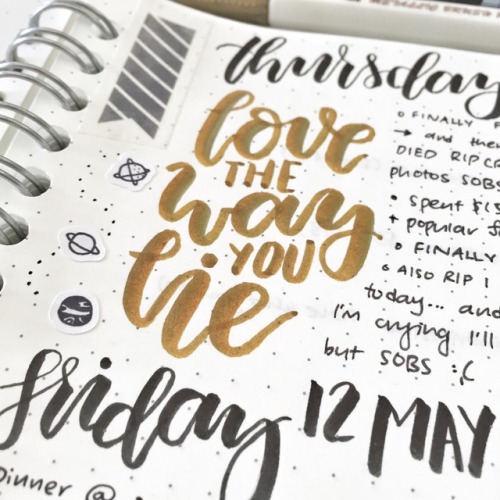 thursday
love
THE
way
YOU
lie
FINALLY
→ and
DIED RIP
photos SOBS
• spent $15
+ popular
FINALLY
ALSO RIP I
today... and
I'm crying I'll
but SOBS :(
friday 12 MAY
Dinner @